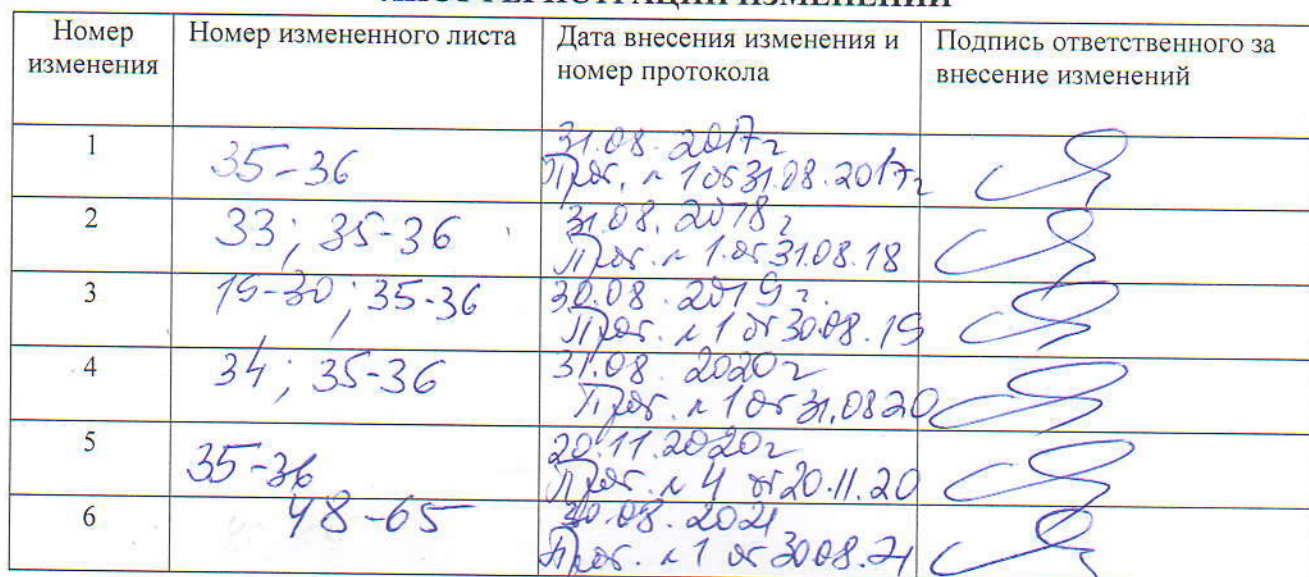 ЛИСТ РЕГИСТРАЦИИ ИЗМЕНЕНИЙ
Номер изменения
Номер измененного листа
Дата внесения изменения и номер протокола
Подпись ответственного за внесение изменений
1
35-36
31.08.2017г
Прот. № 1 от 31.08.2017г
2
33; 35-36
31.08.2018г
Прот. № 1 от 31.08.18
3
19-30; 35-36
30.08.2019г.
Прот. № 1 от 30.08.19
4
34; 35-36
31.08.2020г
Прот. № 1 от 31.08.20
5
35-36
20.11.2020г
Прот. № 4 от 20.11.20
6
48-65
30.08.2021
Прот. № 1 от 30.08.21